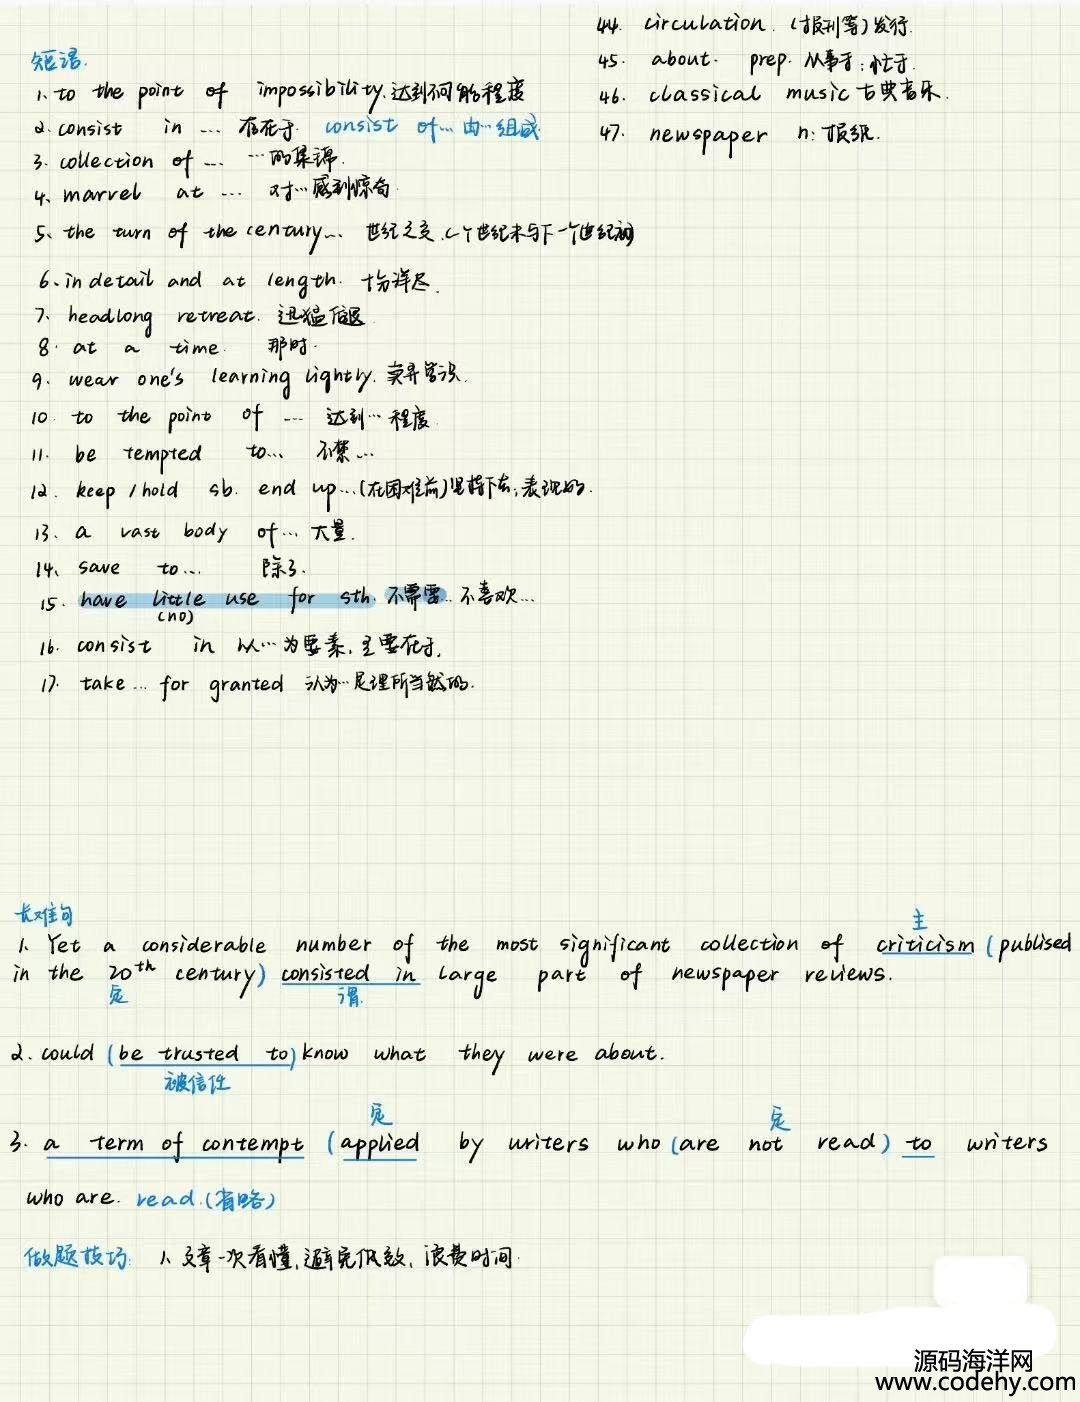 短语.
1. to the point of impossibility. 达到不可能程度
2. consist in ... 存在于. consist of... 由...组成
3. collection of ... ...的集锦.
4. marvel at ... 对...感到惊奇
5. the turn of the century... 世纪之交.(一个世纪末与下一个世纪初)
6. in detail and at length. 十分详尽.
7. headlong retreat. 迅猛后退
8. at a time. 那时.
9. wear one's learning lightly. 卖弄学识.
10. to the point of ... 达到...程度.
11. be tempted to... 不禁...
12. keep / hold sb. end up...(在困难前)坚持下去; 表现好.
13. a vast body of... 大量.
14. save to... 除了.
15. have little use for sth. 不需要.. 不喜欢...
(no)
16. consist in 以...为要素, 主要在于.
17. take ... for granted 认为...是理所当然的.
44. circulation. (报刊等)发行.
45. about. prep. 从事于; 忙于.
46. classical music 古典音乐.
47. newspaper n: 报纸.
长难句
主
1. Yet a considerable number of the most significant collection of criticism (publised
in the 20th century) consisted in large part of newspaper reviews.
定 谓.
2. could (be trusted to) know what they were about.
被信任
定 定
3. a term of contempt (applied by writers who (are not read) to writers
who are. read.(省略)
做题技巧: 1. 文章一次看懂, 避免低效, 浪费时间.
源码海洋网
www.codehy.com